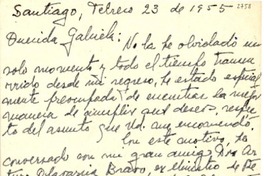 Santiago, Febrero 23 de 1955
Querida Gabriela: No la he olvidado un
solo momento y todo el tiempo transcu
rrido desde mi regreso, he estado especial
mente preocupada de encontrar la mejor
manera de cumplir sus deseos, respec
to del asunto que Ud. me encomendó.
Con este motivo, he
conversado con mi gran amigo Dn. Ar
turo Olavarría Bravo, ex Ministro de Re